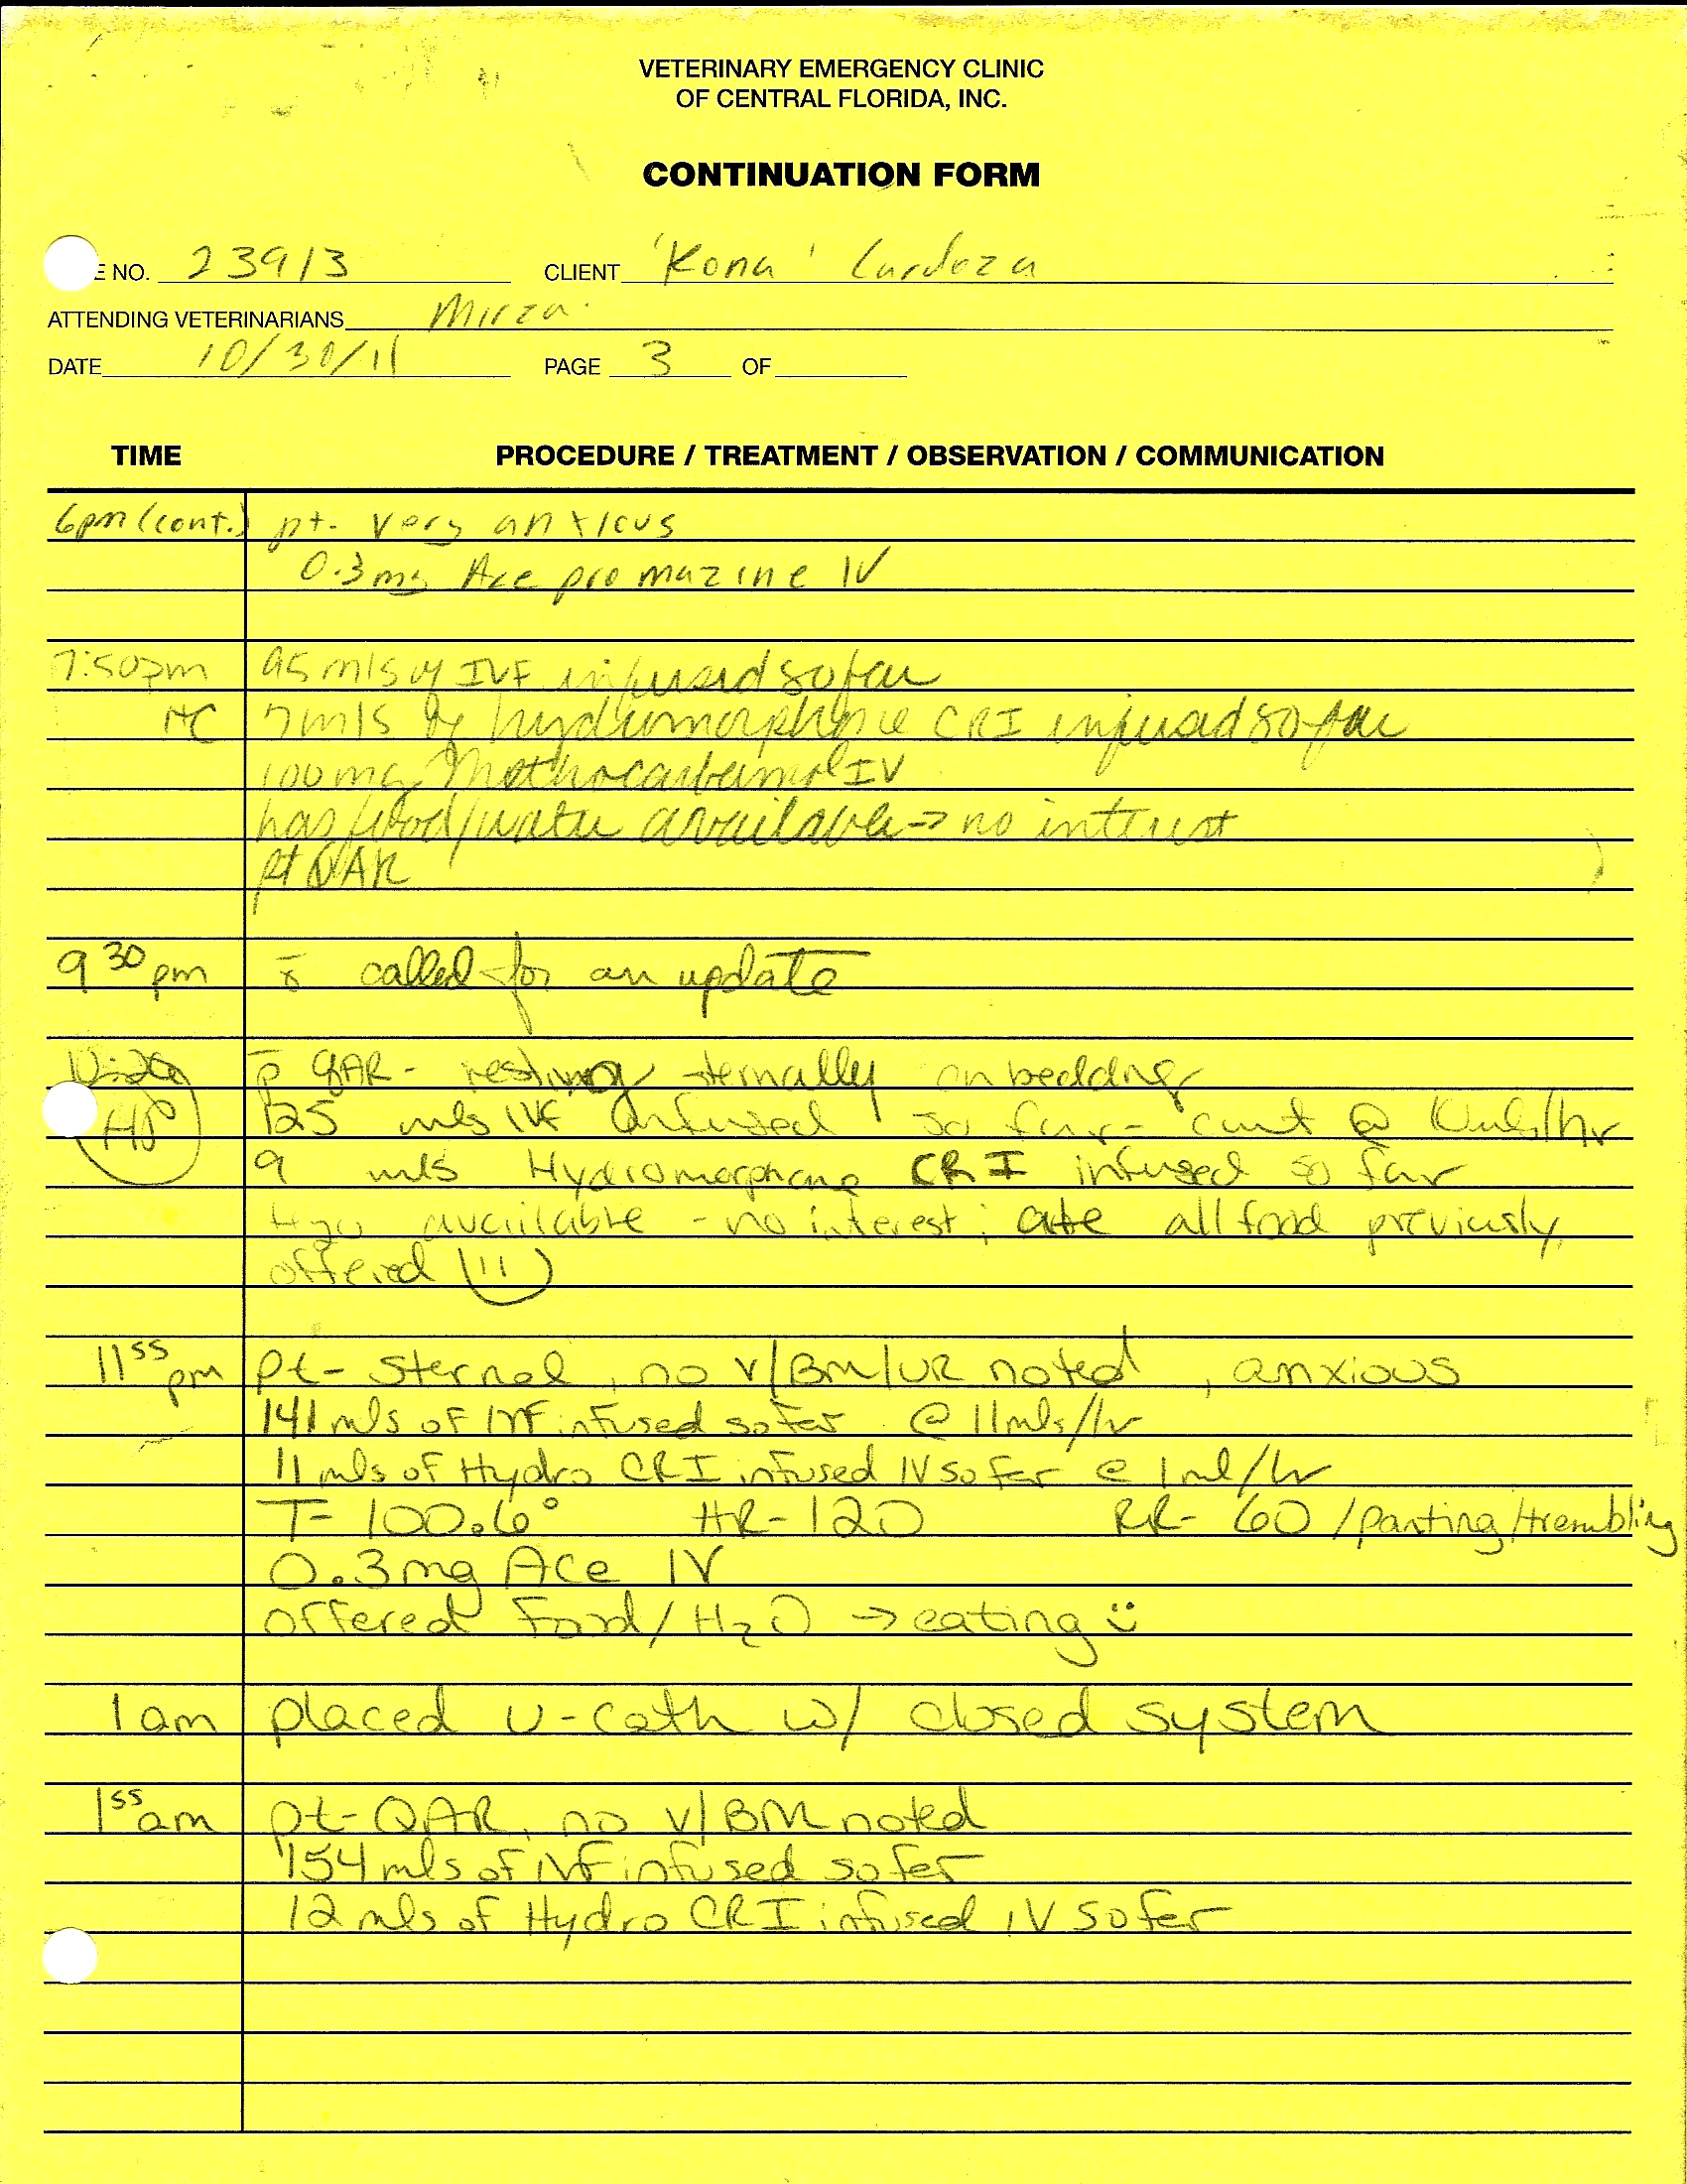 VETERINARY EMERGENCY CLINIC
OF CENTRAL FLORIDA, INC.
CONTINUATION FORM
E NO. 23913 CLIENT 'Kona' Cardoza
ATTENDING VETERINARIANS Mirza
DATE 10/30/11 PAGE 3 OF
TIME PROCEDURE / TREATMENT / OBSERVATION / COMMUNICATION
6pm (cont.) pt. very anxious
0.3mg Acepromazine IV
7:50pm 95 mls of IVF infused so far
7 mls of hydromorphone CRI infused so far
100mg Methocarbamol IV
has food/water available → no interest
pt QAR
9 30 pm called for an update
p QAR - resting sternally on bedding
125 mls IVF infused so far - cont @ mls/hr
9 mls Hydromorphone CRI infused so far
H20 available - no interest; ate all food previously
offered
11 55 pm pt- sternal, no v/BM/UR noted, anxious
141 mls of IVF infused so far @ 11mls/hr
11 mls of Hydro CRI infused IV so far @ 1ml/hr
T- 100.6° HR- 120 RR- 60 /panting/trembling
0.3mg Ace IV
offered Food/H2O → eating :)
1 am placed u-cath w/ closed system
1 55 am pt- QAR, no v/BM noted
154 mls of IVF infused so far
12 mls of Hydro CRI infused IV so far